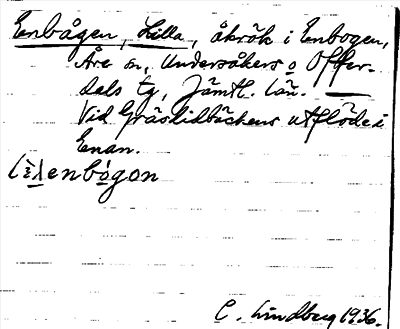 Enbågen, Lilla, åkrök i Enbogen,
Åre sn, Undersåkers o Offer-
dals tg, Jämtl. län.
Vid Gräslidbäckens utflöde i
Enan.
enbógon
C. Lindberg 1936.